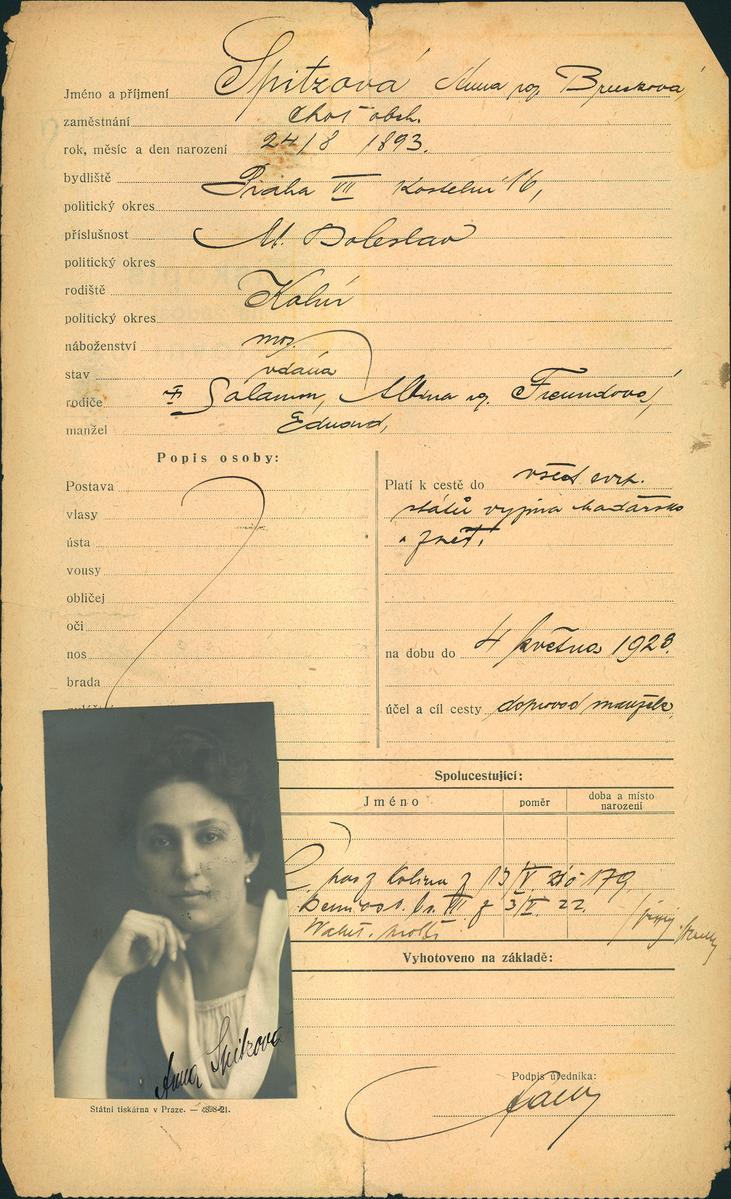 Jméno a příjmení Spitzová Anna roz. Bruskova
zaměstnání choť obch.
rok, měsíc a den narození 24/8 1893.
bydliště Praha VII Kostelní 16,
politický okres
příslušnost M. Boleslav
politický okres
rodiště Kolín
politický okres
náboženství moj.
stav vdaná
rodiče Salamon, roz. Freundová,
manžel Eduard,
Popis osoby:
Postava
vlasy
ústa
vousy
obličej
oči
nos
brada
Platí k cestě do všech evr.
států vyjma Maďarsko
na dobu do 4 května 1923.
účel a cíl cesty doprovod manžela
Spolucestující:
Jméno poměr doba a místo narození
Kolina z 13/V. 179
VII z 3/V. 22.
Vyhotoveno na základě:
Podpis úředníka:
Anna Spitzová
Státní tiskárna v Praze. — 4898-21.